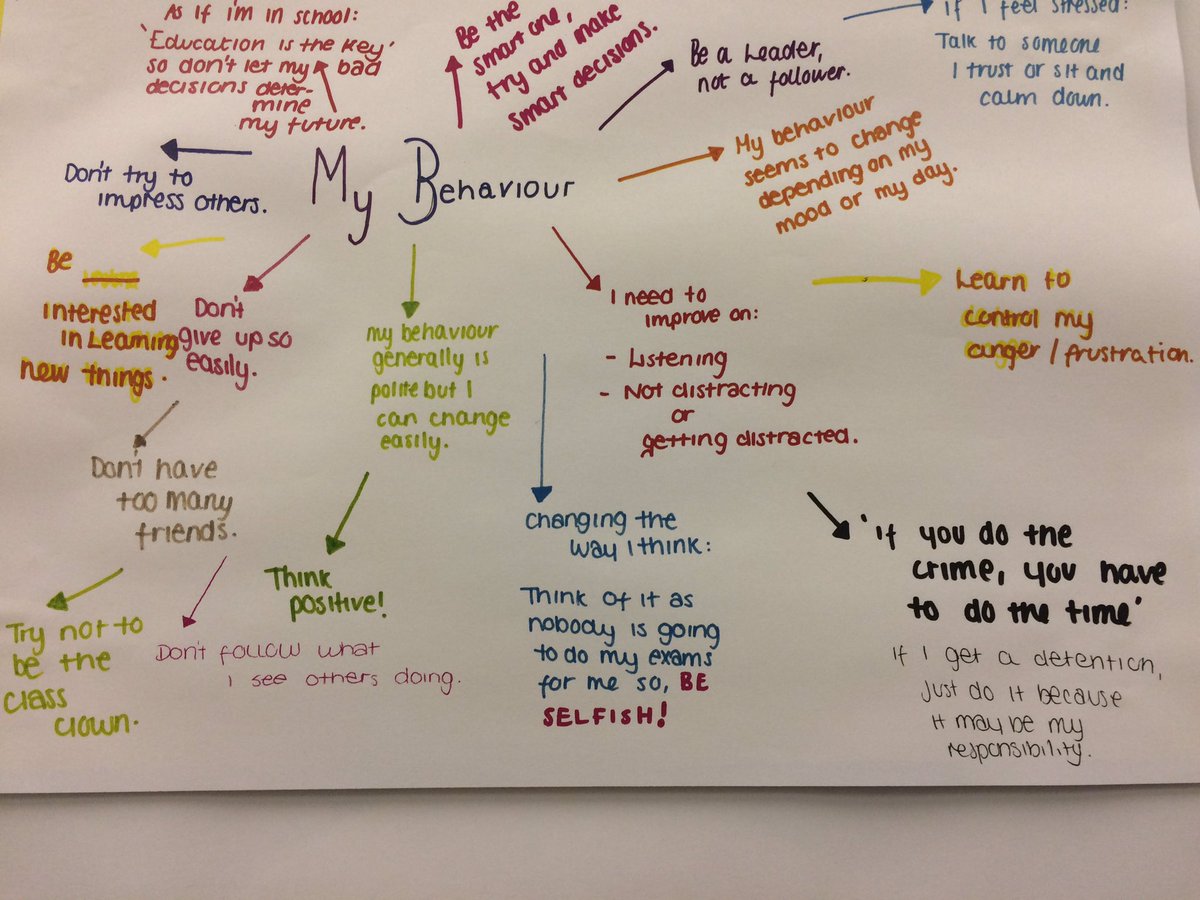 As if i'm in school:
'Education is the key'
so don't let my bad
decisions deter-
mine
my future.
Be the
smart one,
try and make
smart decisions.
Be a leader,
not a follower.
if I feel stressed:
Talk to someone
I trust or sit and
calm down.
Don't try to
impress others.
My Behaviour
My behaviour
seems to change
depending on my
mood or my day.
Be
interested
in learning
new things.
Don't
give up so
easily.
my behaviour
generally is
polite but I
can change
easily.
I need to
improve on:
- Listening
- Not distracting
or
getting distracted.
Learn to
control my
anger / frustration.
Don't have
too many
friends.
Think
positive!
changing the
way I think:
Think of it as
nobody is going
to do my exams
for me so, BE
SELFISH!
'if you do the
crime, you have
to do the time'
If I get a detention,
just do it because
it may be my
responsibility.
Try not to
be the
class
clown.
Don't follow what
I see others doing.